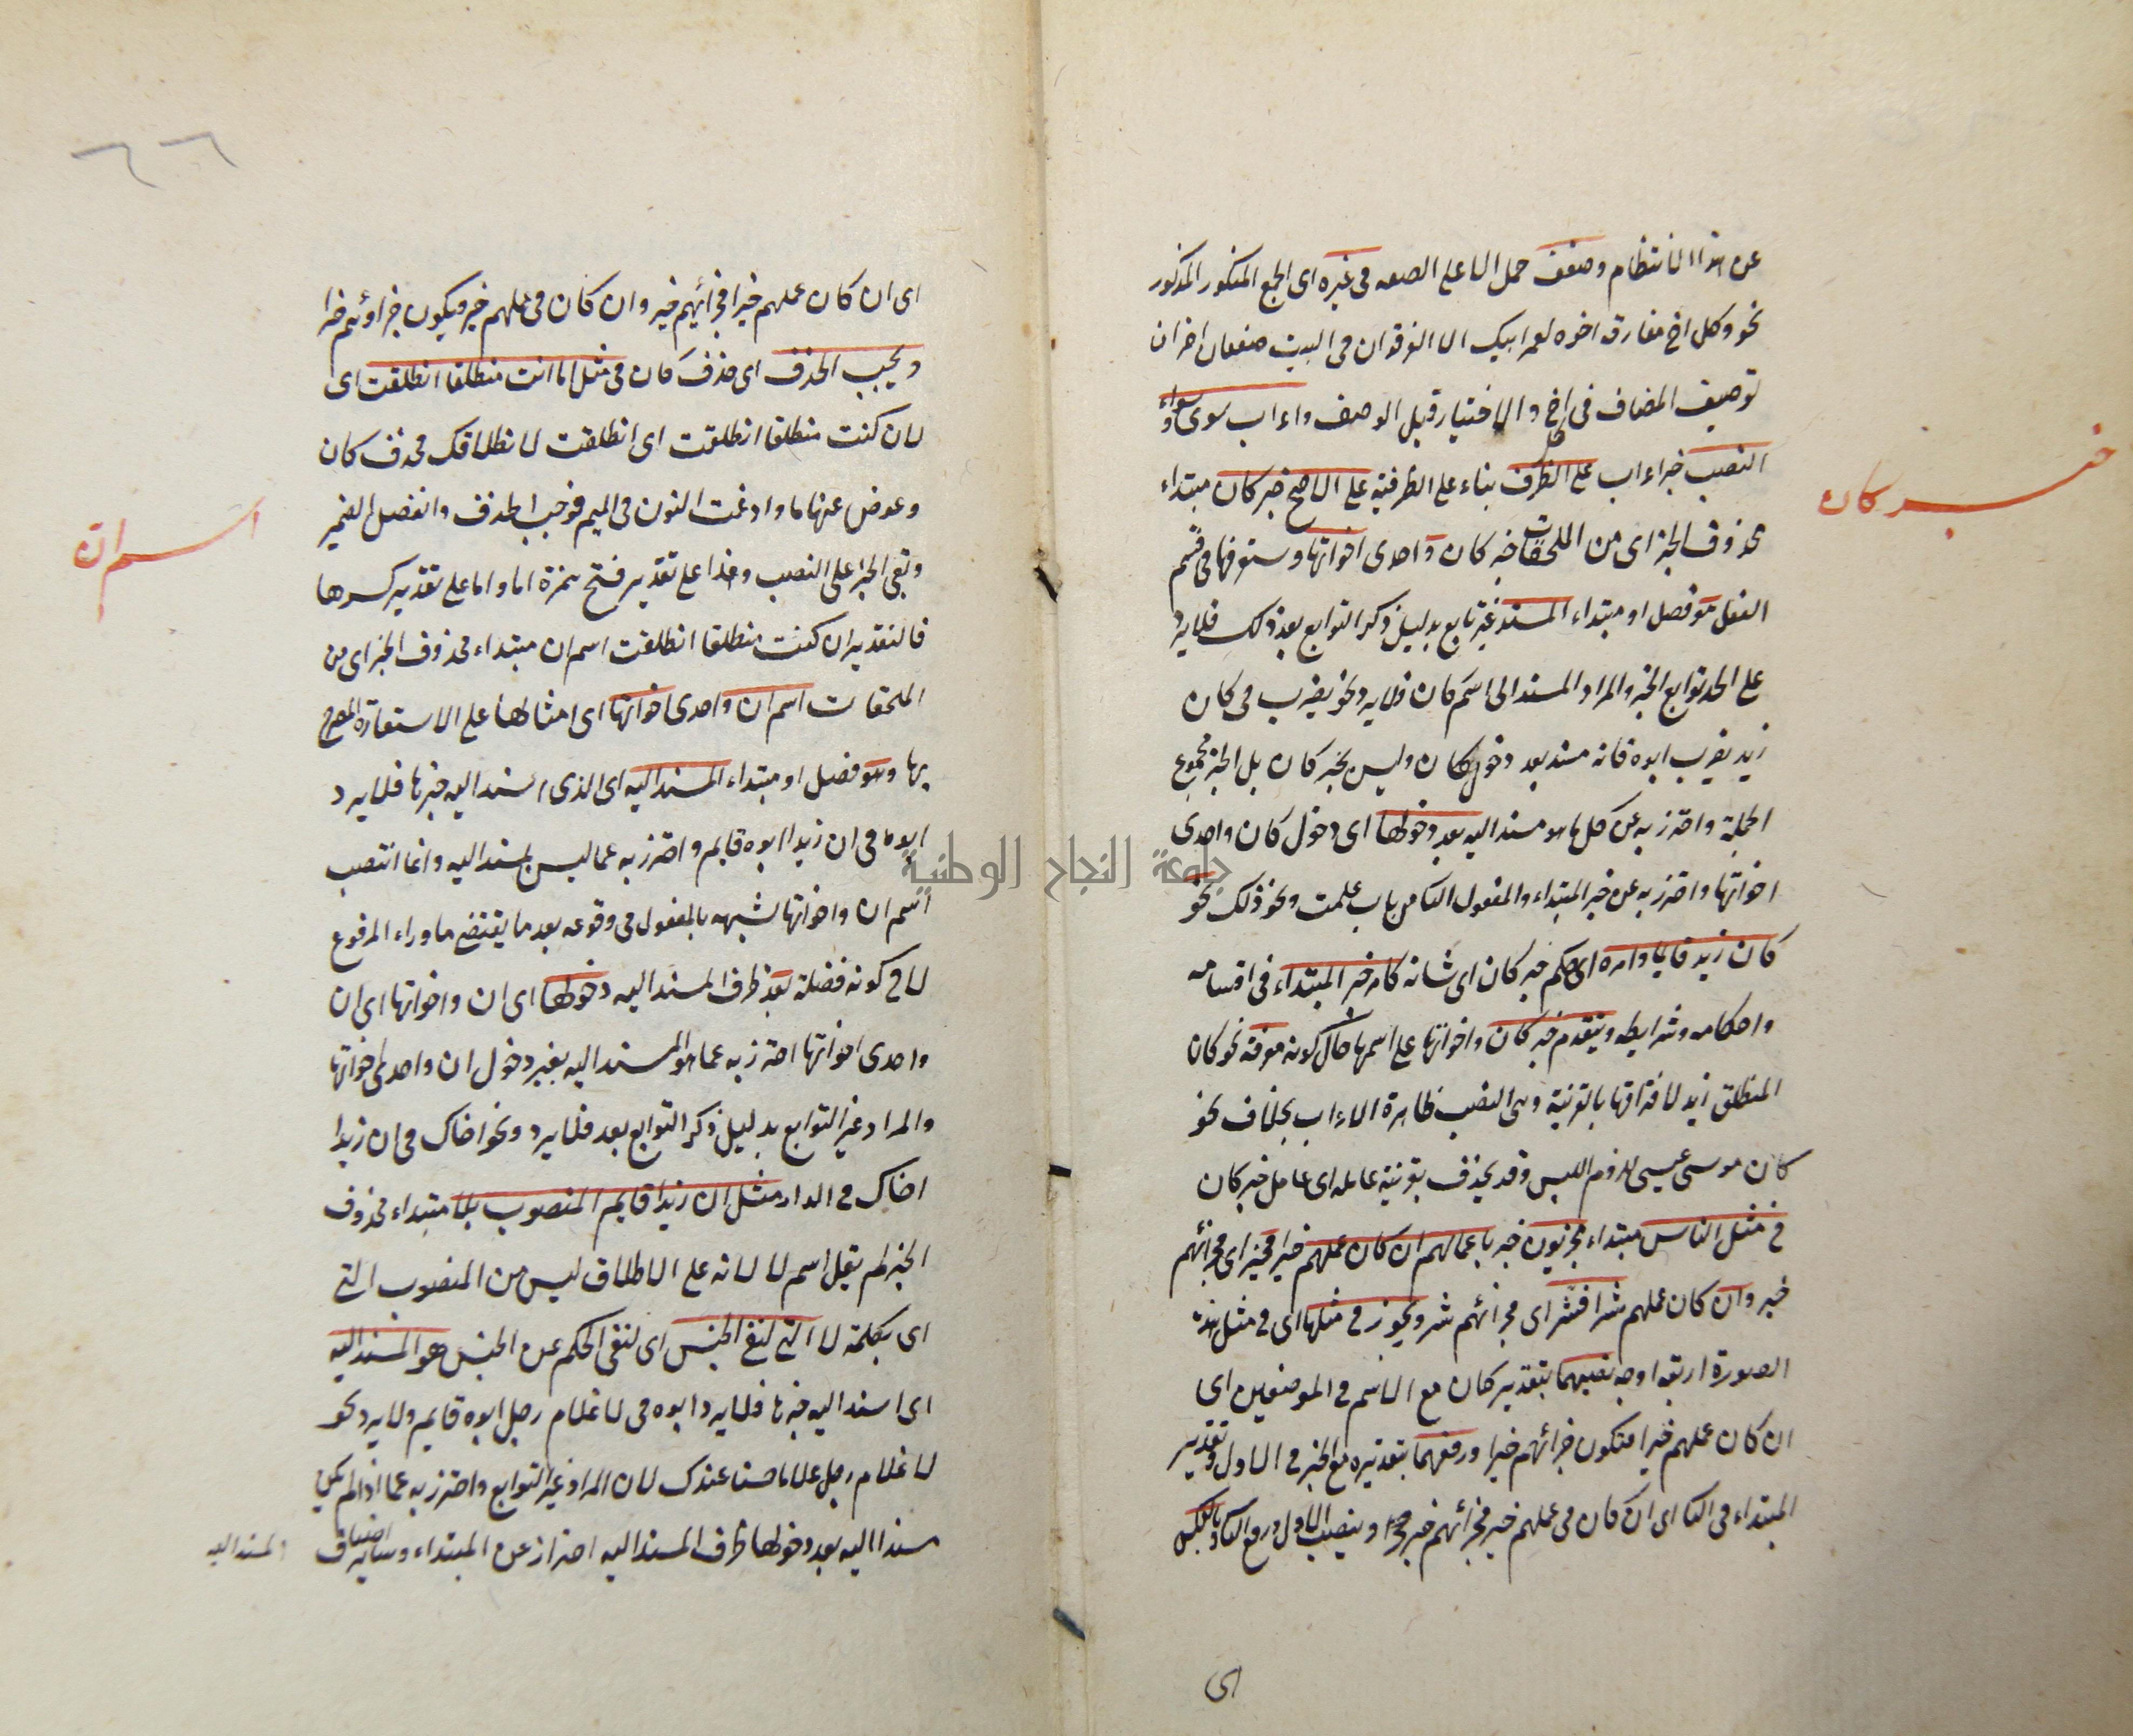 عن هذا الانتظام وضعف حمل الا على الصفة فى غيره اى الجمع المنكور المذكور
نحو وكل اخ مفارقه اخوه لعمر ابيك الا الفرقدان فى البيت ضعفان اخران
توصيف المضاف فى كل اخ والاختيار قبل الوصف واعراب سوى وسواء
النصب خبر اعراب على الظرف بناء على الظرفية على الاصح خبر كان مبتداء
محذوف الخبر اى من الملحقات خبر كان واحدى اخواتها وستعرفها فى قسم
الفعل هو فصل او مبتداء المسند غير تابع بدليل ذكر التوابع بعد ذلك فلا يرد
على الحد توابع الخبر والمراد المسند الى اسم كان فلا يرد نحو يضرب فى كان
زيد يضرب ابوه فانه مسند بعد دخول كان وليس بخبر كان بل الخبر مجموع
الجملة واحترز به عن كل ما هو مسند اليه بعد دخولها اى دخول كان واحدى
اخواتها واحترز به عن خبر المبتداء والمفعول الثا من باب علمت ونحو ذلك نحو
كان زيد قايما وامره اى حكم خبر كان اى شانه كامر خبر المبتداء فى اقسامه
واحكامه وشرايطه ويتقدم خبر كان واخواتها على اسمها حال كونه معرفة نحو كان
المنطلق زيد لافتراقها بالقرينة وهى النصب ظاهرة الاعراب بخلاف نحو
كان موسى عيسى للزوم اللبس وقد يحذف بقرينة عامله اى عامل خبر كان
فى مثل الناس مبتداء مجزيون خبر باعمالهم ان كان عملهم خيرا فخير اى فجزائهم
خير وان كان عملهم شرا فشر اى فجزائهم شر ويجوز فى مثلها اى فى مثل هذه
الصورة اربعة اوجه نصبهما بتقدير كان مع الاسم فى الموضعين اى
ان كان عملهم خيرا فتكون جزائهم خيرا ورفعهما بتقديره مع الخبر فى الاول وتقدير
المبتداء فى الثا اى ان كان فى عملهم خير فجزائهم خير وينصب الاول ورفع الثا وبالعكس
اى
خبر كان
٦٦
اى ان كان عملهم خيرا فجزائهم خير وان كان فى عملهم خير فيكون جزاؤهم خيرا
ويجب الحذف اى حذف كان فى مثل اما انت منطلقا انطلقت اى
لان كنت منطلقا انطلقت اى انطلقت لانطلاقك فحذف كان
وعوض عنها ما وادغمت النون فى الميم فوجب الحذف وانفصل الضمير
وبقى الخبر على النصب وهذا على تقدير فتح همزة اما واما على تقدير كسرها
فالتقدير ان كنت منطلقا انطلقت اسم ان مبتداء محذوف الخبر اى من
الملحقات اسم ان واحدى اخواتها اى امثالها على الاستعارة المصرح
بها وهو فصل او مبتداء المسند اليه اى الذى اسند اليه خبرها فلا يرد
ابوه فى ان زيدا ابوه قايم واحترز به عما ليس بمسند اليه وانما انتصب
اسم ان واخواتها لشبهه بالمفعول فى وقوعه بعد ما يقتضى ما وراء المرفوع
لا فى كونه فضلة بعد ظرف المسند اليه دخولها اى ان واخواتها اى ان
واحدى اخواتها احترز به عما هو المسند اليه بغير دخول ان واحدى اخواتها
والمراد غير التوابع بدليل ذكر التوابع بعد فلا يرد ونحو اخاك فى ان زيدا
اخاك فى الدار مثل ان زيدا قايم المنصوب بلا مبتداء محذوف
الخبر لم يقل اسم لا لانه على الاطلاق ليس من المنصوب التى
اى بكلمة لا التى لنفى الجنس اى لنفى الحكم عن الجنس هو المسند اليه
اى اسند اليه خبرها فلا يرد ابوه فى لا غلام رجل ابوه قايم ولا يرد نحو
لا غلام رجل غلاما حسنا عندك لان المراد غير التوابع واحترز به عما اذا لم يكن
مسندا اليه بعد دخولها ظرف المسند اليه احتراز عن المبتداء وساير اصناف
المسند اليه
اسم ان
جامعة النجاح الوطنية